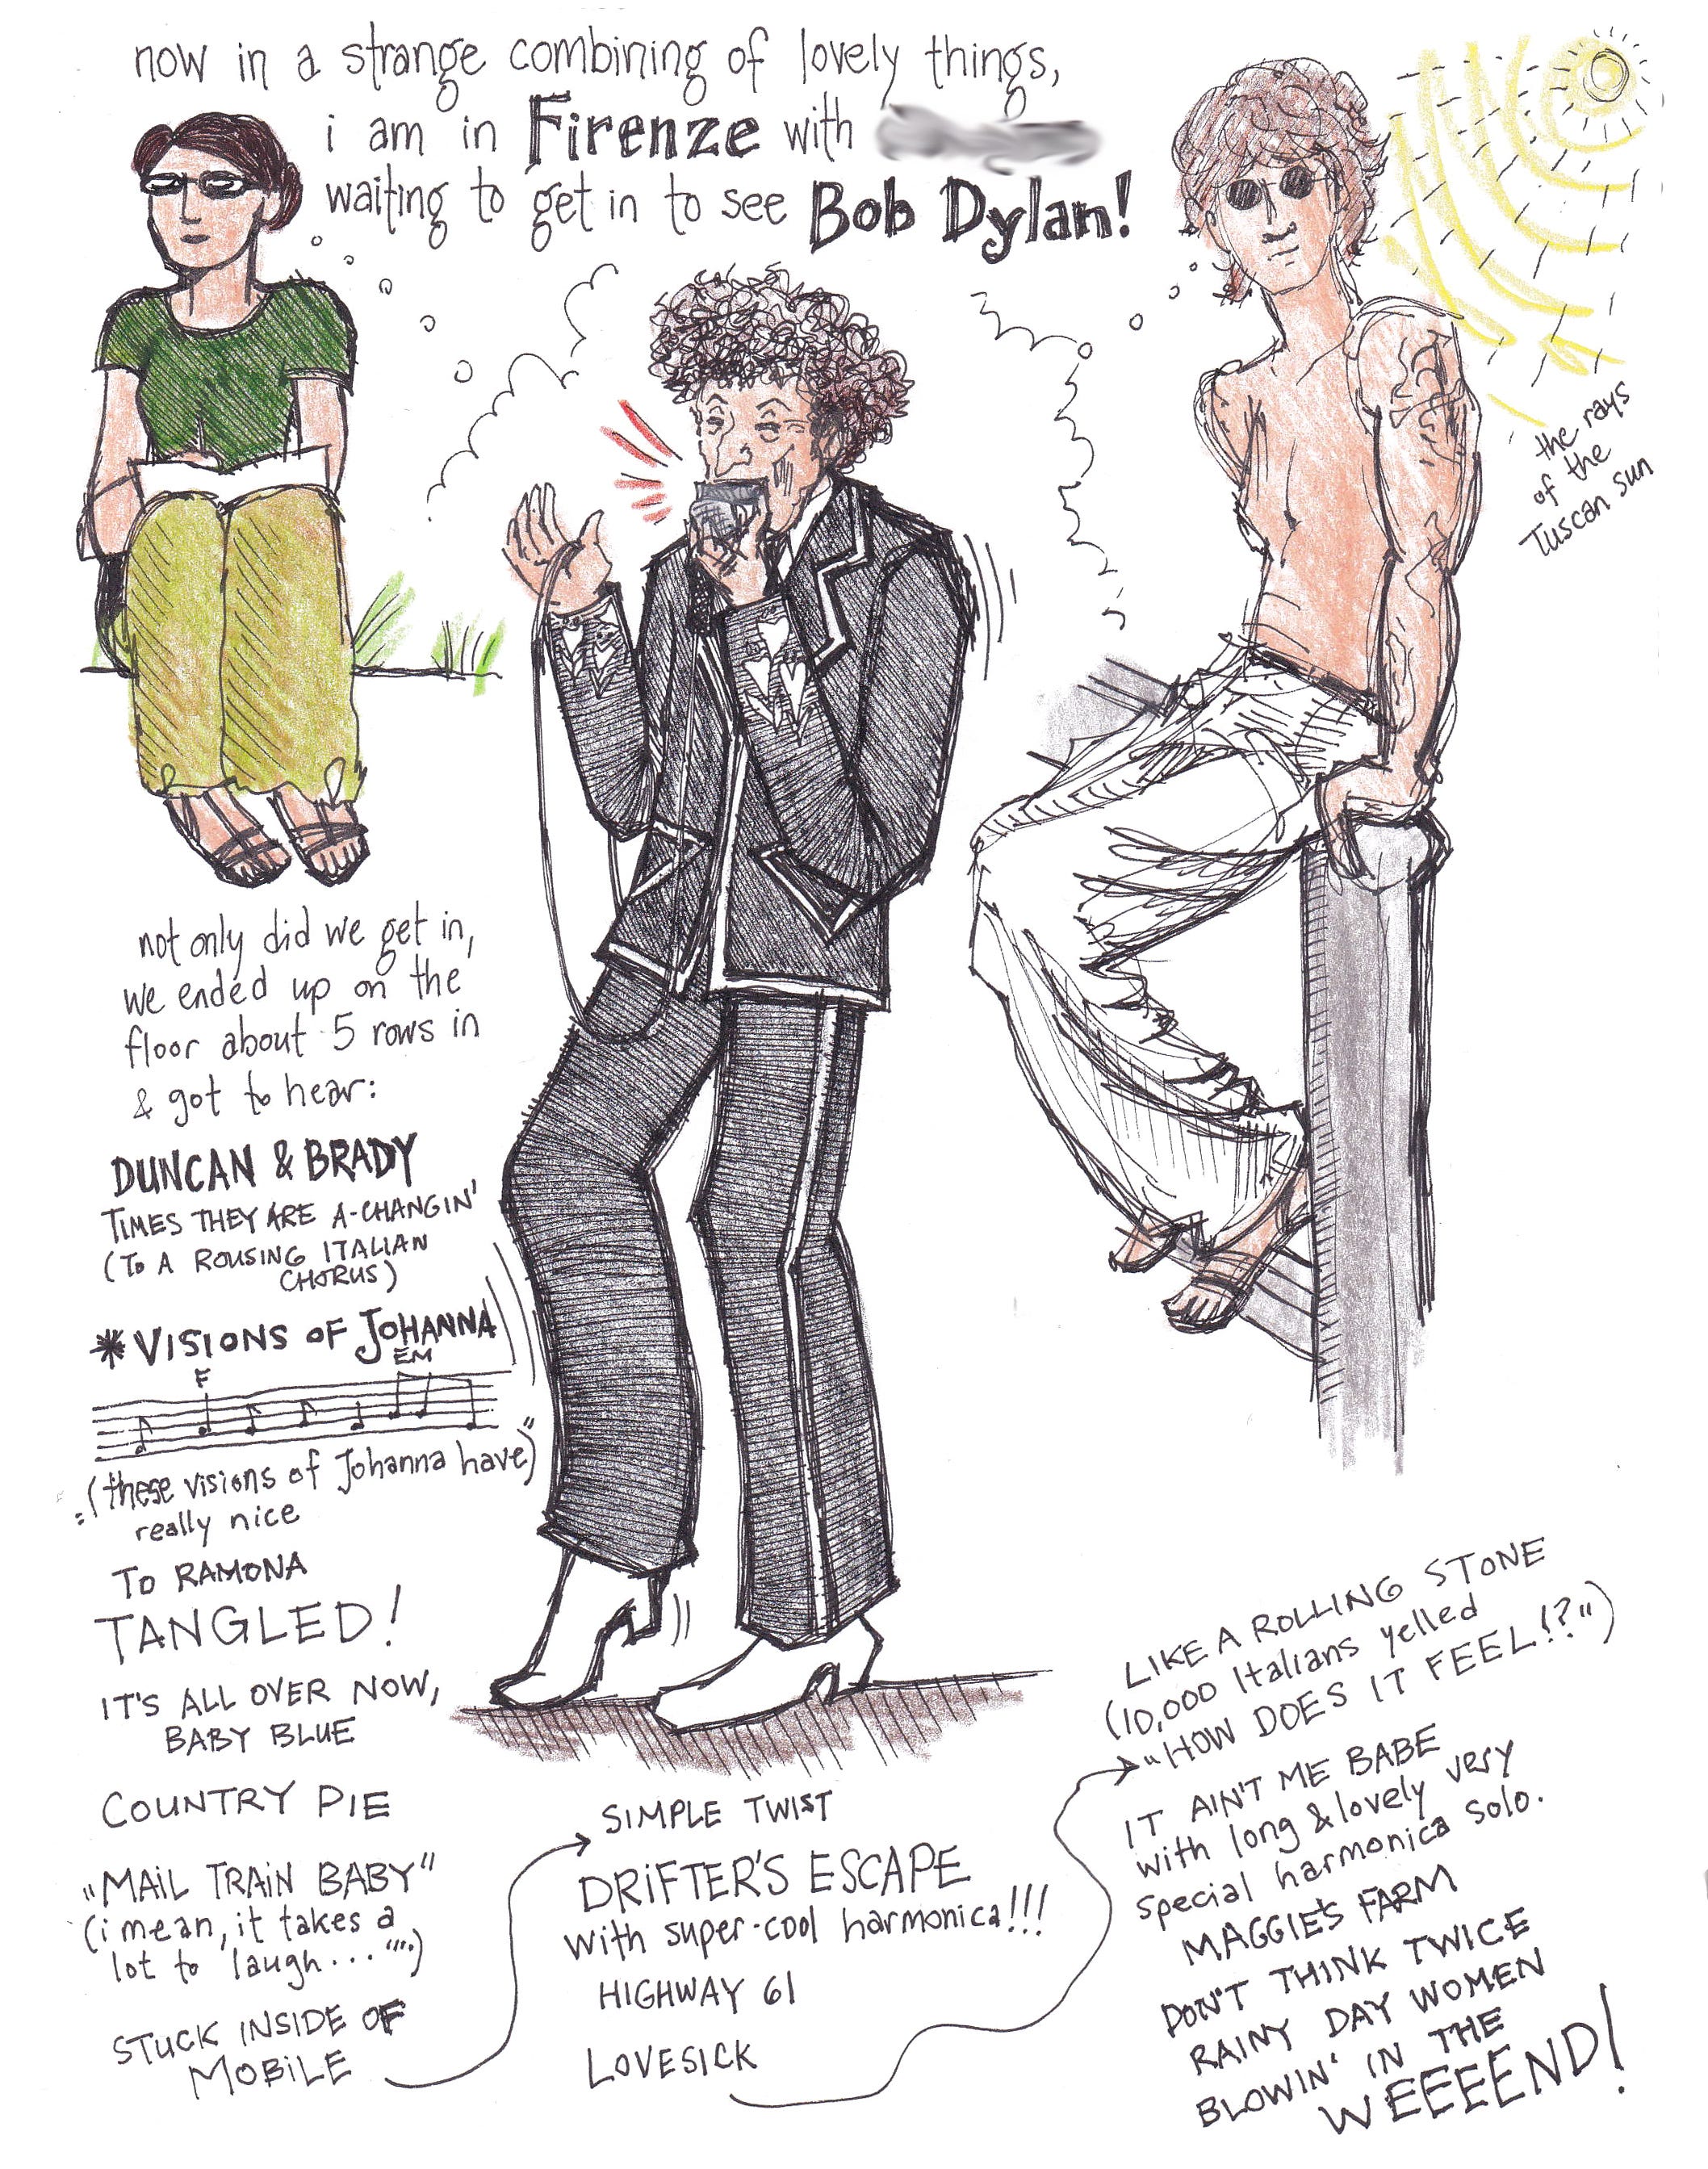 now in a strange combining of lovely things,
i am in Firenze with
waiting to get in to see Bob Dylan!
the rays
of the
Tuscan sun
not only did we get in,
we ended up on the
floor about 5 rows in
& got to hear:
DUNCAN & BRADY
TIMES THEY ARE A-CHANGIN'
(TO A ROUSING ITALIAN
CHORUS)
* VISIONS OF JOHANNA
F EM
(these visions of Johanna have)"
really nice
TO RAMONA
TANGLED!
IT'S ALL OVER NOW,
BABY BLUE
COUNTRY PIE
"MAIL TRAIN BABY"
(i mean, it takes a
lot to laugh...""")
STUCK INSIDE OF
MOBILE
SIMPLE TWIST
DRIFTER'S ESCAPE
with super-cool harmonica!!!
HIGHWAY 61
LOVESICK
LIKE A ROLLING STONE
(10,000 Italians yelled
"HOW DOES IT FEEL!?")
IT AIN'T ME BABE
with long & lovely very
special harmonica solo.
MAGGIE'S FARM
DON'T THINK TWICE
RAINY DAY WOMEN
BLOWIN' IN THE
WEEEEND!